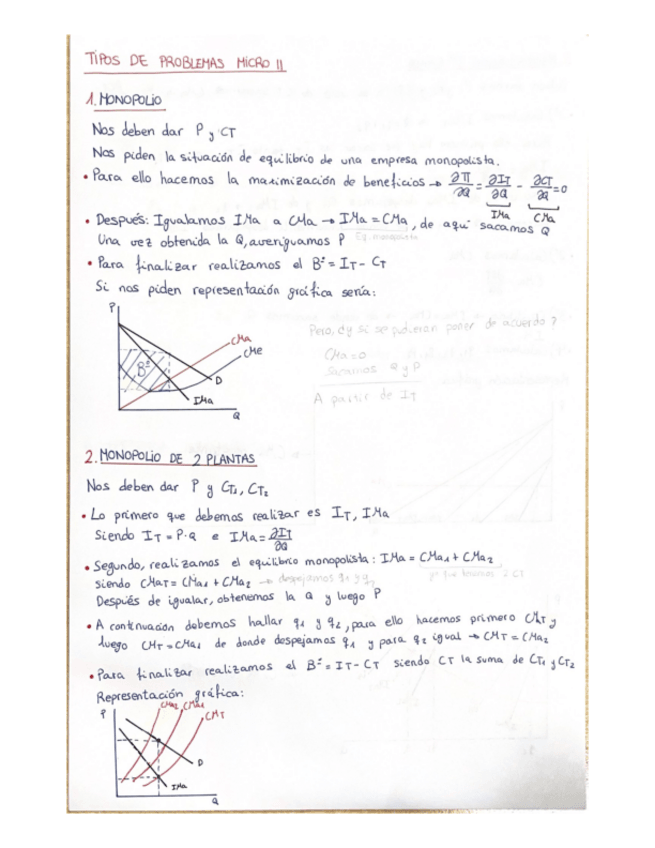 TIPOS DE PROBLEMAS MICRO II
1. MONOPOLIO
Nos deben dar P y CT
Nos piden la situación de equilibrio de una empresa monopolista.
• Para ello hacemos la maximización de beneficios → ∂Π/∂Q = ∂IT/∂Q - ∂CT/∂Q = 0
IMa CMa
• Después: Igualamos IMa a CMa → IMa = CMa, de aquí sacamos Q
Una vez obtenida la Q, averiguamos P Eq. monopolista
• Para finalizar realizamos el Bº = IT - CT
Si nos piden representación gráfica sería:
P
CMa
CMe
Bº
D
IMa
Q
Pero, ¿y si se pudieran poner de acuerdo?
CMa = 0
Sacamos Q y P
A partir de IT
2. MONOPOLIO DE 2 PLANTAS
Nos deben dar P y CT1, CT2
• Lo primero que debemos realizar es IT, IMa
Siendo IT = P·Q e IMa = ∂IT/∂Q
• Segundo, realizamos el equilibrio monopolista: IMa = CMa1 + CMa2
siendo CMaT = CMa1 + CMa2 → despejamos q1 y q2 ya que tenemos 2 CT
Después de igualar, obtenemos la Q y luego P
• A continuación debemos hallar q1 y q2, para ello hacemos primero CMT y
luego CMT = CMa1 de donde despejamos q1 y para q2 igual → CMT = CMa2
• Para finalizar realizamos el Bº = IT - CT siendo CT la suma de CT1 y CT2
Representación gráfica:
P
CMa2 CMa1
CMT
D
IMa
Q